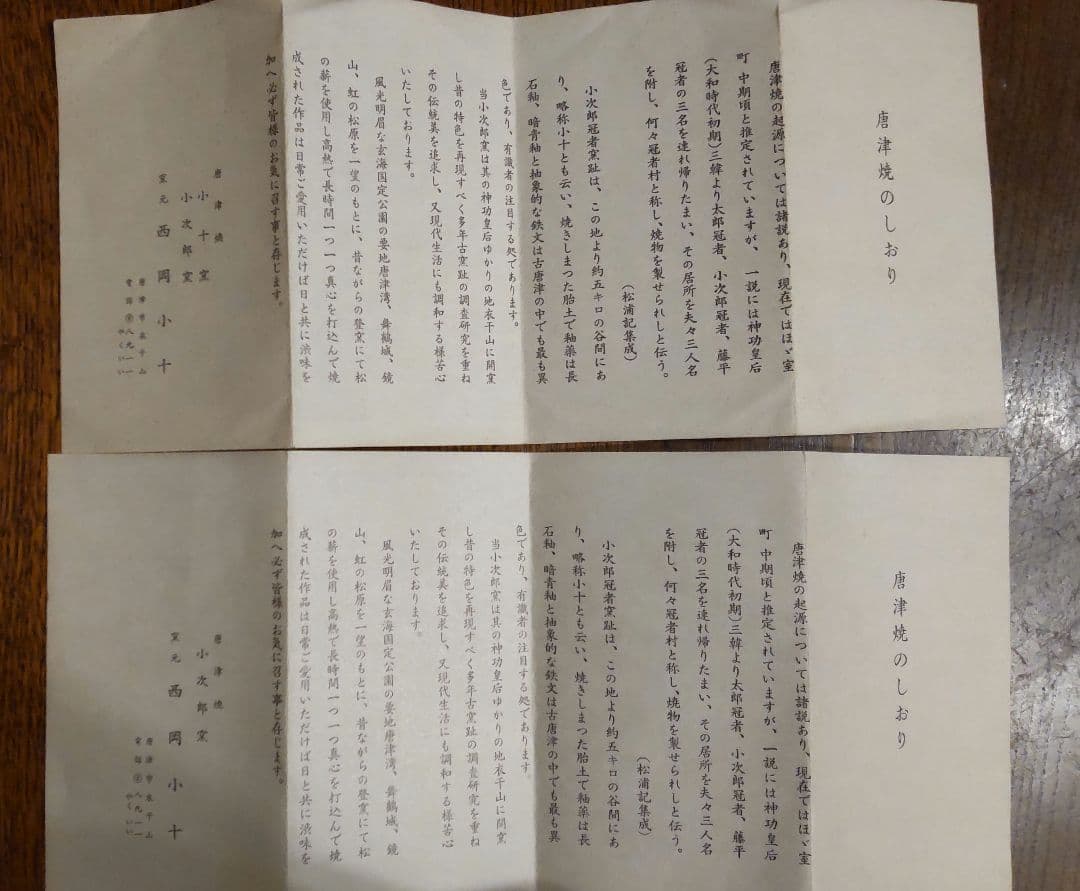 唐津焼のしおり
唐津焼の起源については諸説あり、現在ではほゞ室
町 中期頃と推定されていますが、一説には神功皇后
(大和時代初期)三韓より太郎冠者、小次郎冠者、藤平
冠者の三名を連れ帰りたまい、その居所を夫々三人名
を附し、何々冠者村と称し、焼物を製せられしと伝う。
(松浦記集成)
小次郎冠者窯趾は、この地より約五キロの谷間にあ
り、略称小十とも云い、焼きしまった胎土で釉薬は長
石釉、暗青釉と抽象的な鉄文は古唐津の中でも最も異
色であり、有識者の注目する処であります。
当小次郎窯は其の神功皇后ゆかりの地衣干山に開窯
し昔の特色を再現すべく多年古窯趾の調査研究を重ね
その伝統美を追求し、又現代生活にも調和する様苦心
いたしております。
風光明眉な玄海国定公園の要地唐津湾、舞鶴城、鏡
山、虹の松原を一望のもとに、昔ながらの登窯にて松
の薪を使用し高熱で長時間一つ一つ真心を打込んで焼
成された作品は日常ご愛用いただけば日と共に渋味を
加へ必ず皆様のお気に召す事と存じます。
唐津焼
小十窯
小次郎窯
窯元 西岡小十
唐津市衣干山
電話
唐津焼のしおり
唐津焼の起源については諸説あり、現在ではほゞ室
町 中期頃と推定されていますが、一説には神功皇后
(大和時代初期)三韓より太郎冠者、小次郎冠者、藤平
冠者の三名を連れ帰りたまい、その居所を夫々三人名
を附し、何々冠者村と称し、焼物を製せられしと伝う。
(松浦記集成)
小次郎冠者窯趾は、この地より約五キロの谷間にあ
り、略称小十とも云い、焼きしまった胎土で釉薬は長
石釉、暗青釉と抽象的な鉄文は古唐津の中でも最も異
色であり、有識者の注目する処であります。
当小次郎窯は其の神功皇后ゆかりの地衣干山に開窯
し昔の特色を再現すべく多年古窯趾の調査研究を重ね
その伝統美を追求し、又現代生活にも調和する様苦心
いたしております。
風光明眉な玄海国定公園の要地唐津湾、舞鶴城、鏡
山、虹の松原を一望のもとに、昔ながらの登窯にて松
の薪を使用し高熱で長時間一つ一つ真心を打込んで焼
成された作品は日常ご愛用いただけば日と共に渋味を
加へ必ず皆様のお気に召す事と存じます。
唐津焼
小次郎窯
窯元 西岡小十
唐津市衣干山
電話